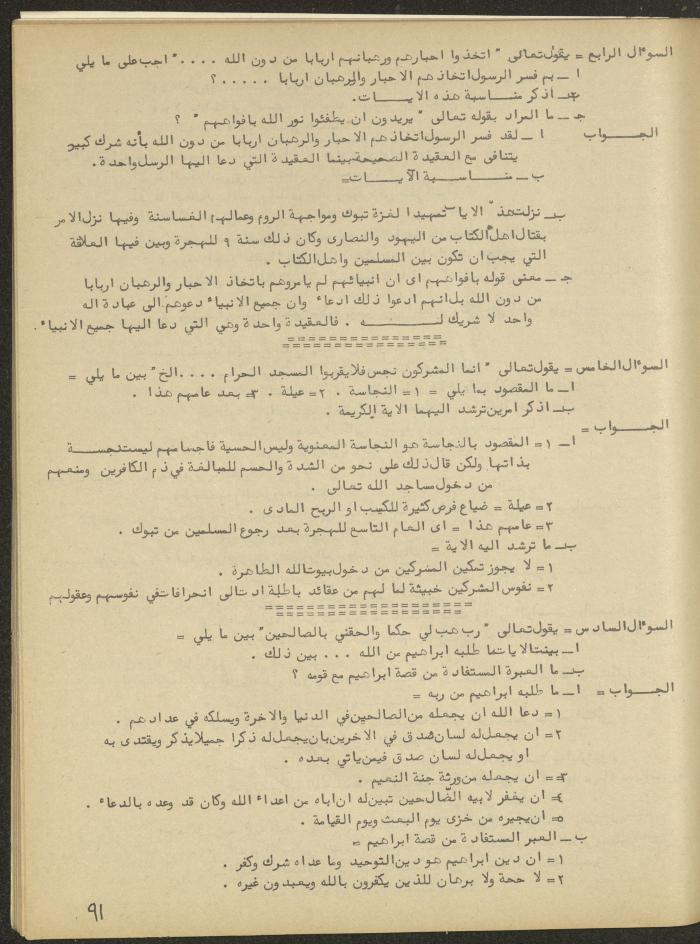 السوءال الرابع = يقول تعالى " اتخذوا احبارهم ورهبانهم اربابا من دون الله .... " اجب على ما يلي
ا ــ بم فسر الرسول اتخاذهم الاحبار والرهبان اربابا ..... ؟
بـ اذكر منـــاسبة هذه الايـــات.
جـ ــ ما المراد بقوله تعالى " يريدون ان يطفئوا نور الله بافواههم " ؟
الجـــواب ا ــ لقد فسر الرسول اتخاذهم الاحبار والرهبان اربابا من دون الله بأنه شرك كبير
يتنافى مع العقيدة الصحيحة بينما العقيدة التي دعا اليها الرسل واحدة .
ب ــ منـــاسـبة الآيـــات=
بـ نزلت هذه الايات تمهيدا لغزة تبوك ومواجهة الروم وعمالهم الغساسنة وفيها نزل الامر
بقتال اهل الكتاب من اليهود والنصارى وكان ذلك سنة ٩ للهجرة وبين فيها العلاقة
التي يجب ان تكون بين المسلمين واهل الكتاب .
جـ ــ معنى قوله بافواههم اى ان انبيائهم لم يامروهم باتخاذ الاحبار والرهبان اربابا
من دون الله بل انهم ادعوا ذلك ادعاء وان جميع الانبياء دعوهم الى عبادة اله
واحد لا شريك لـــــه . فالعقيدة واحدة وهي التي دعا اليها جميع الانبياء .
================
السوءال الخامس = يقول تعالى " انما المشركون نجس فلا يقربوا المسجد الحرام ....الخ " بين ما يلي =
ا ــ ما المقصود بما يلي = ١= النجاسة . ٢= عيلة . ٣= بعد عامهم هذا .
بـ اذكر امرين ترشد اليهما الاية الكريمة .
الجـــواب =
ا ــ ١= المقصود بالنجاسة هو النجاسة المعنوية وليس الحسية فاجسامهم ليست نجســـة
بذاتها ولكن قال ذلك على نحو من الشدة والحسم للمبالغة في ذم الكافرين ومنعهم
من دخول مساجد الله تعالى .
٢= عيلة = ضياع فرص كثيرة للكسب او الربح المادى .
٣= عامهم هذا = اى العام التاسع للهجرة بعد رجوع المسلمين من تبوك .
بـ ما ترشد اليه الاية =
١= لا يجوز تمكين المشركين من دخول بيوت الله الطاهرة .
٢= نفوس المشركين خبيثة لما لهم من عقائد باطلة ادت الى انحرافات في نفوسهم وعقولهم
====================
السوءال السادس = يقول تعالى " رب هب لي حكما والحقني بالصالحين " بين ما يلي =
ا ــ بينت الايات ما طلبه ابراهيم من الله ... بين ذلك .
بـ ما العبرة المستفادة من قصة ابراهيم مع قومه ؟
الجـــواب = ا ــ ما طلبه ابراهيم من ربه =
١= دعا الله ان يجعله من الصالحين في الدنيا والاخرة ويسلكه في عدادهم .
٢= ان يجعل له لسان صدق في الاخرين بان يجعل له ذكرا جميلا يذكر ويقتدى به
او يجعل له لسان صدق فيمن ياتي بعده .
٣= ان يجعله من ورثة جنة النعيم .
٤= ان يغفر لابيه الضال حين تبين له ان اباه من اعداء الله وكان قد وعده بالدعاء .
٥= ان يجيره من خزى يوم البعث ويوم القيامة .
ب ــ العبر المستفادة من قصة ابراهيم =
١= ان دين ابراهيم هو دين التوحيد وما عداه شرك وكفر .
٢= لا حجة ولا برهان للذين يكفرون بالله ويعبدون غيره .
91